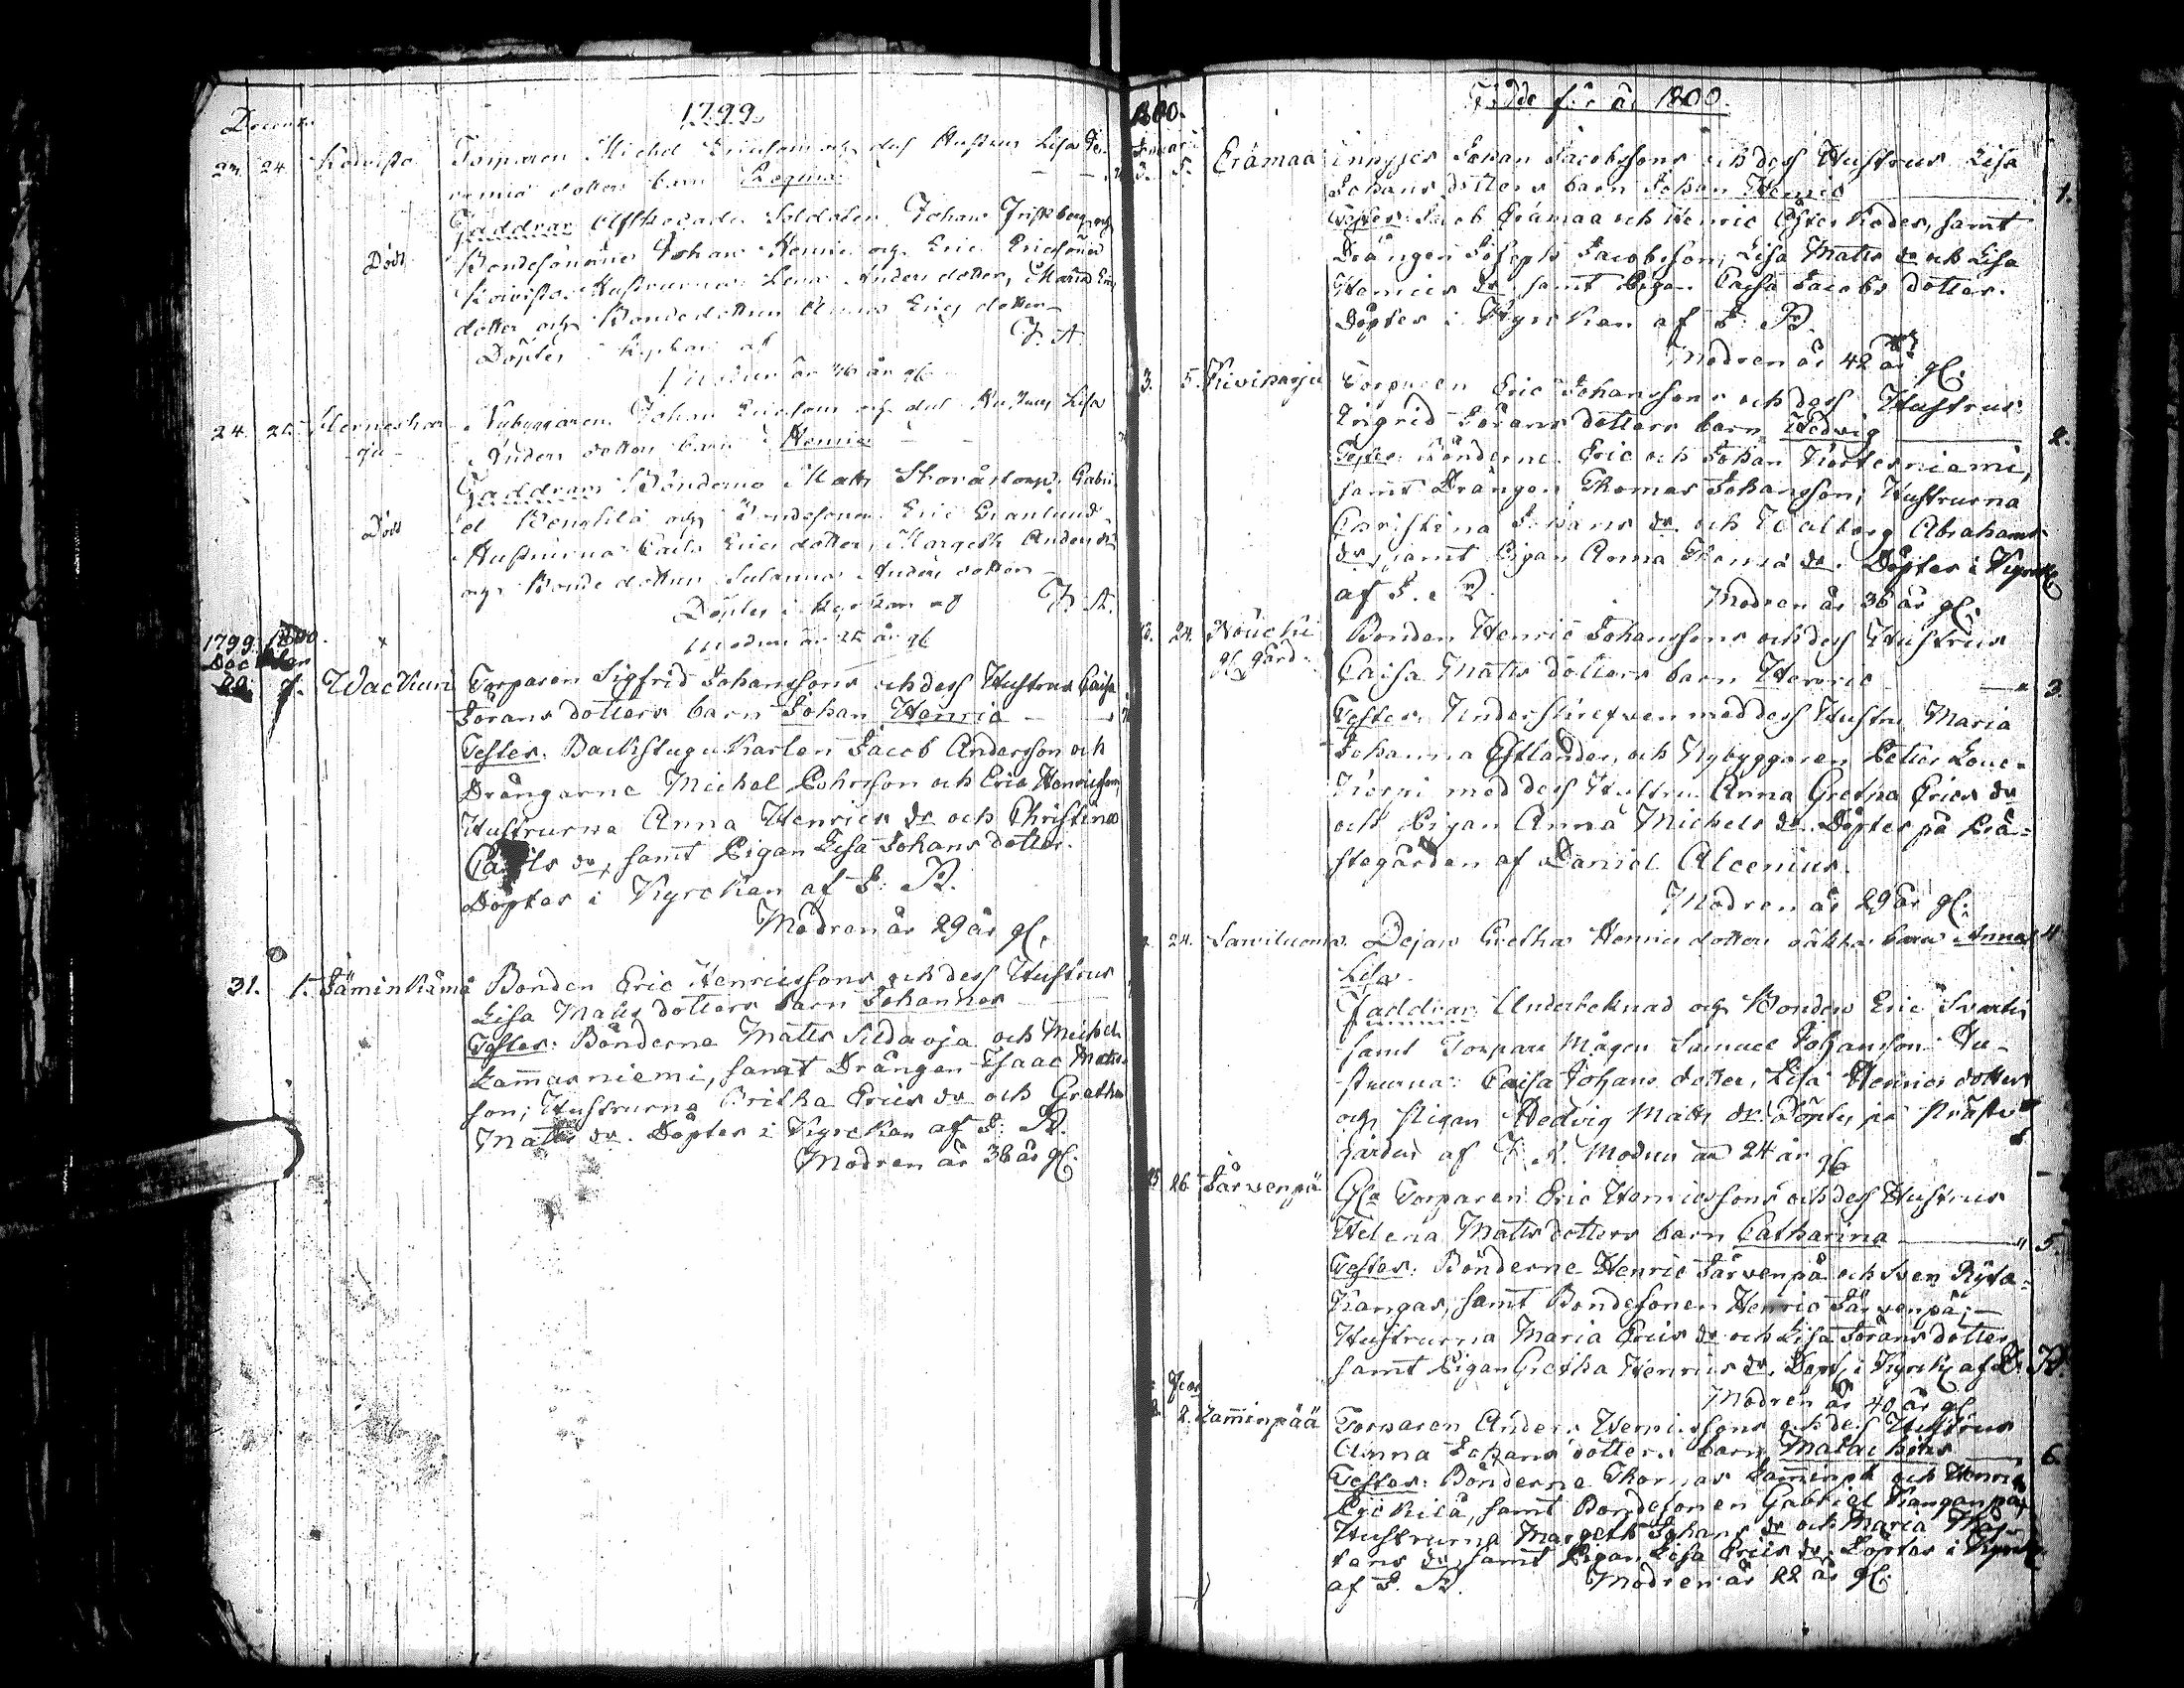 Decemb.
1799.
23. 24. Koivisto Torparen Michel Ericsons och dess Hustrus Lisa
dotters barn Regina
Faddrar Afskedade Soldaten Johan Friskberg och
Död Bondesönerne Johan Henric och Eric Ericsöner
Koivisto. Hustrurna Lena Anders dotter, Maria
dotter och Bondedottren Anna Erics dotter
Döptes i Kyrkan af J. A.
Modren är 36 år gl
24. Nybyggaren Johan Ericsons och dess Hustrus Lisa
Anders dotters barn Henric
Faddrar Bönderna Matts Gabri
el och Bondesonen Eric Granlund
Död Hustrurna Carin Erics dotter, Margeth Anders dr
och Bonde dottren Susanna Anders dotter
Döptes i Kyrkan af J. A.
Modren är 25 år gl
1799. 1800.
Dec
29. 7. Wackuri Torparen Sigfrid Johanssons och dess Hustrus Caisa
Jörans dotters barn Johan Henric
Testes. Backstugukarlen Jacob Andersson och
Drängarne Michel Pehrsson och Eric Henricsson,
Hustrurna Anna Henrics dr och Christina
Carls dr, samt Pigan Lisa Johans dotter.
Döptes i Kyrckan af J. R.
Modren är 29 år gl.
31. 1. Jäminkämä Bonden Eric Henricssons och dess Hustrus
Lisa Matts dotters barn Johannes
Testes: Bönderne Matts Sildaoja och Michel
Lammasniemi, samt Drängen Isaac Matts
son; Hustrurna Britha Erics dr och Gretha
Matts dr. Döptes i Kyrckan af J. R.
Modren är 38 år gl.
1800.
Födde för år 1800.
Januari
3. 5. Erämaa Inhyses Johan Jacobssons och dess Hustrus Lisa
Johans dotters barn Johan Henric 1.
Testes: Jacob Erämaa och Henric samt
Drängen Joseph Jacobsson; Lisa Matts dr och Lisa
Henrics dr, samt Pigan Caisa Jacobs dotter.
Döptes i Kyrckan af J. R.
Modren är 42 år gl.
3. 5. Kiviharju Torparen Eric Johanssons och dess Hustrus
Ingrid Jörans dotters barn Hedvig 2.
Testes: Bönderne Eric och Johan Kortesniemi,
samt Drängen Thomas Johansson; Hustrurna
Christina Johans dr och Walborg Abrahams
dr, samt Pigan Anna Thomæ dr. Döptes i Kyrck
af J. R. Modren är 36 år gl.
24. Kouchi Bonden Henric Johanssons och dess Hustrus
gl gård. Caisa Matts dotters barn Henric 3.
Testes. Underskrefven med dess Hustru Maria
Johanna Estlander, och Nybyggaren Petter Loue-
kierri med dess Hustru Anna Gretha Erics dr
och Pigan Anna Michels dr. Döptes på Prä-
stegården af Daniel Alcenius.
Modren är 29 år gl.
24. Sawiluoma. Dejan Gretha Henrics dotters oäkta barn Anna 4
Lisa.
Faddrar Undertecknad och Bonden Eric
samt Torpare Mågen Samuel Johansson Hu-
strurna: Caisa Johans dotter, Lisa Henrics dotter
och Pigan Hedvig Matts dr. Döptes på Präste
gården af J. R. Modren är 24 år gl
26. Järvenpä Gla Torparen Eric Henricssons och dess Hustrus
Helena Matts dotters barn Catharina 5.
Testes. Bönderne Henric Järvenpä och Sven Rytö-
kangas, samt Bondesonen Henric Järvenpä;
Hustrurna Maria Erics dr och Lisa Jörans dotter,
samt Pigan Gretha Henrics dr. Dopt. i Kyrck af J. R.
Modren är 40 år gl
2. Lamminpää Torparen Anders Henricssons och dess Hustrus
Anna Johans dotters barn Malachias 6.
Testes: Bönderne Thomas Lamminpä och Henric
samt Bondesonen Gabriel Kanganpä,
Hustrurna Margeth Johans dr och Maria
dr, samt Pigan Lisa Erics dr. Döptes i Kyrck
af J. R. Modren är 22 år gl.